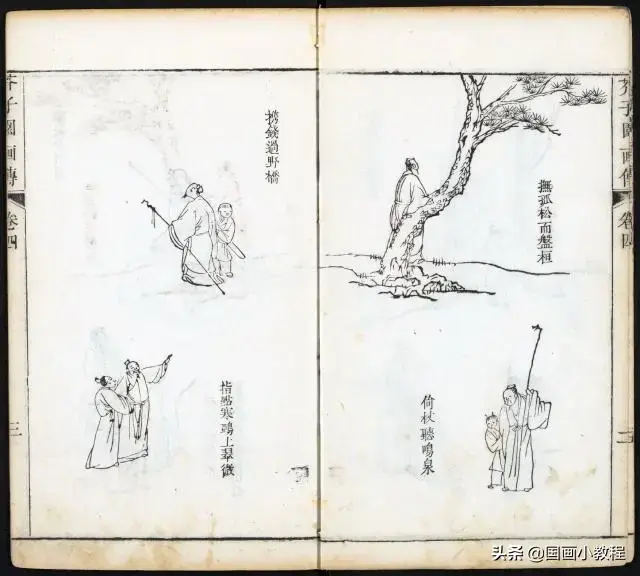 芥子園画傳
卷四
撫孤松而盤桓
倚杖聽鳴泉
携錢過野橋
指點寒鴉上翠微
芥子園画傳
卷四
头条 @国画小教程